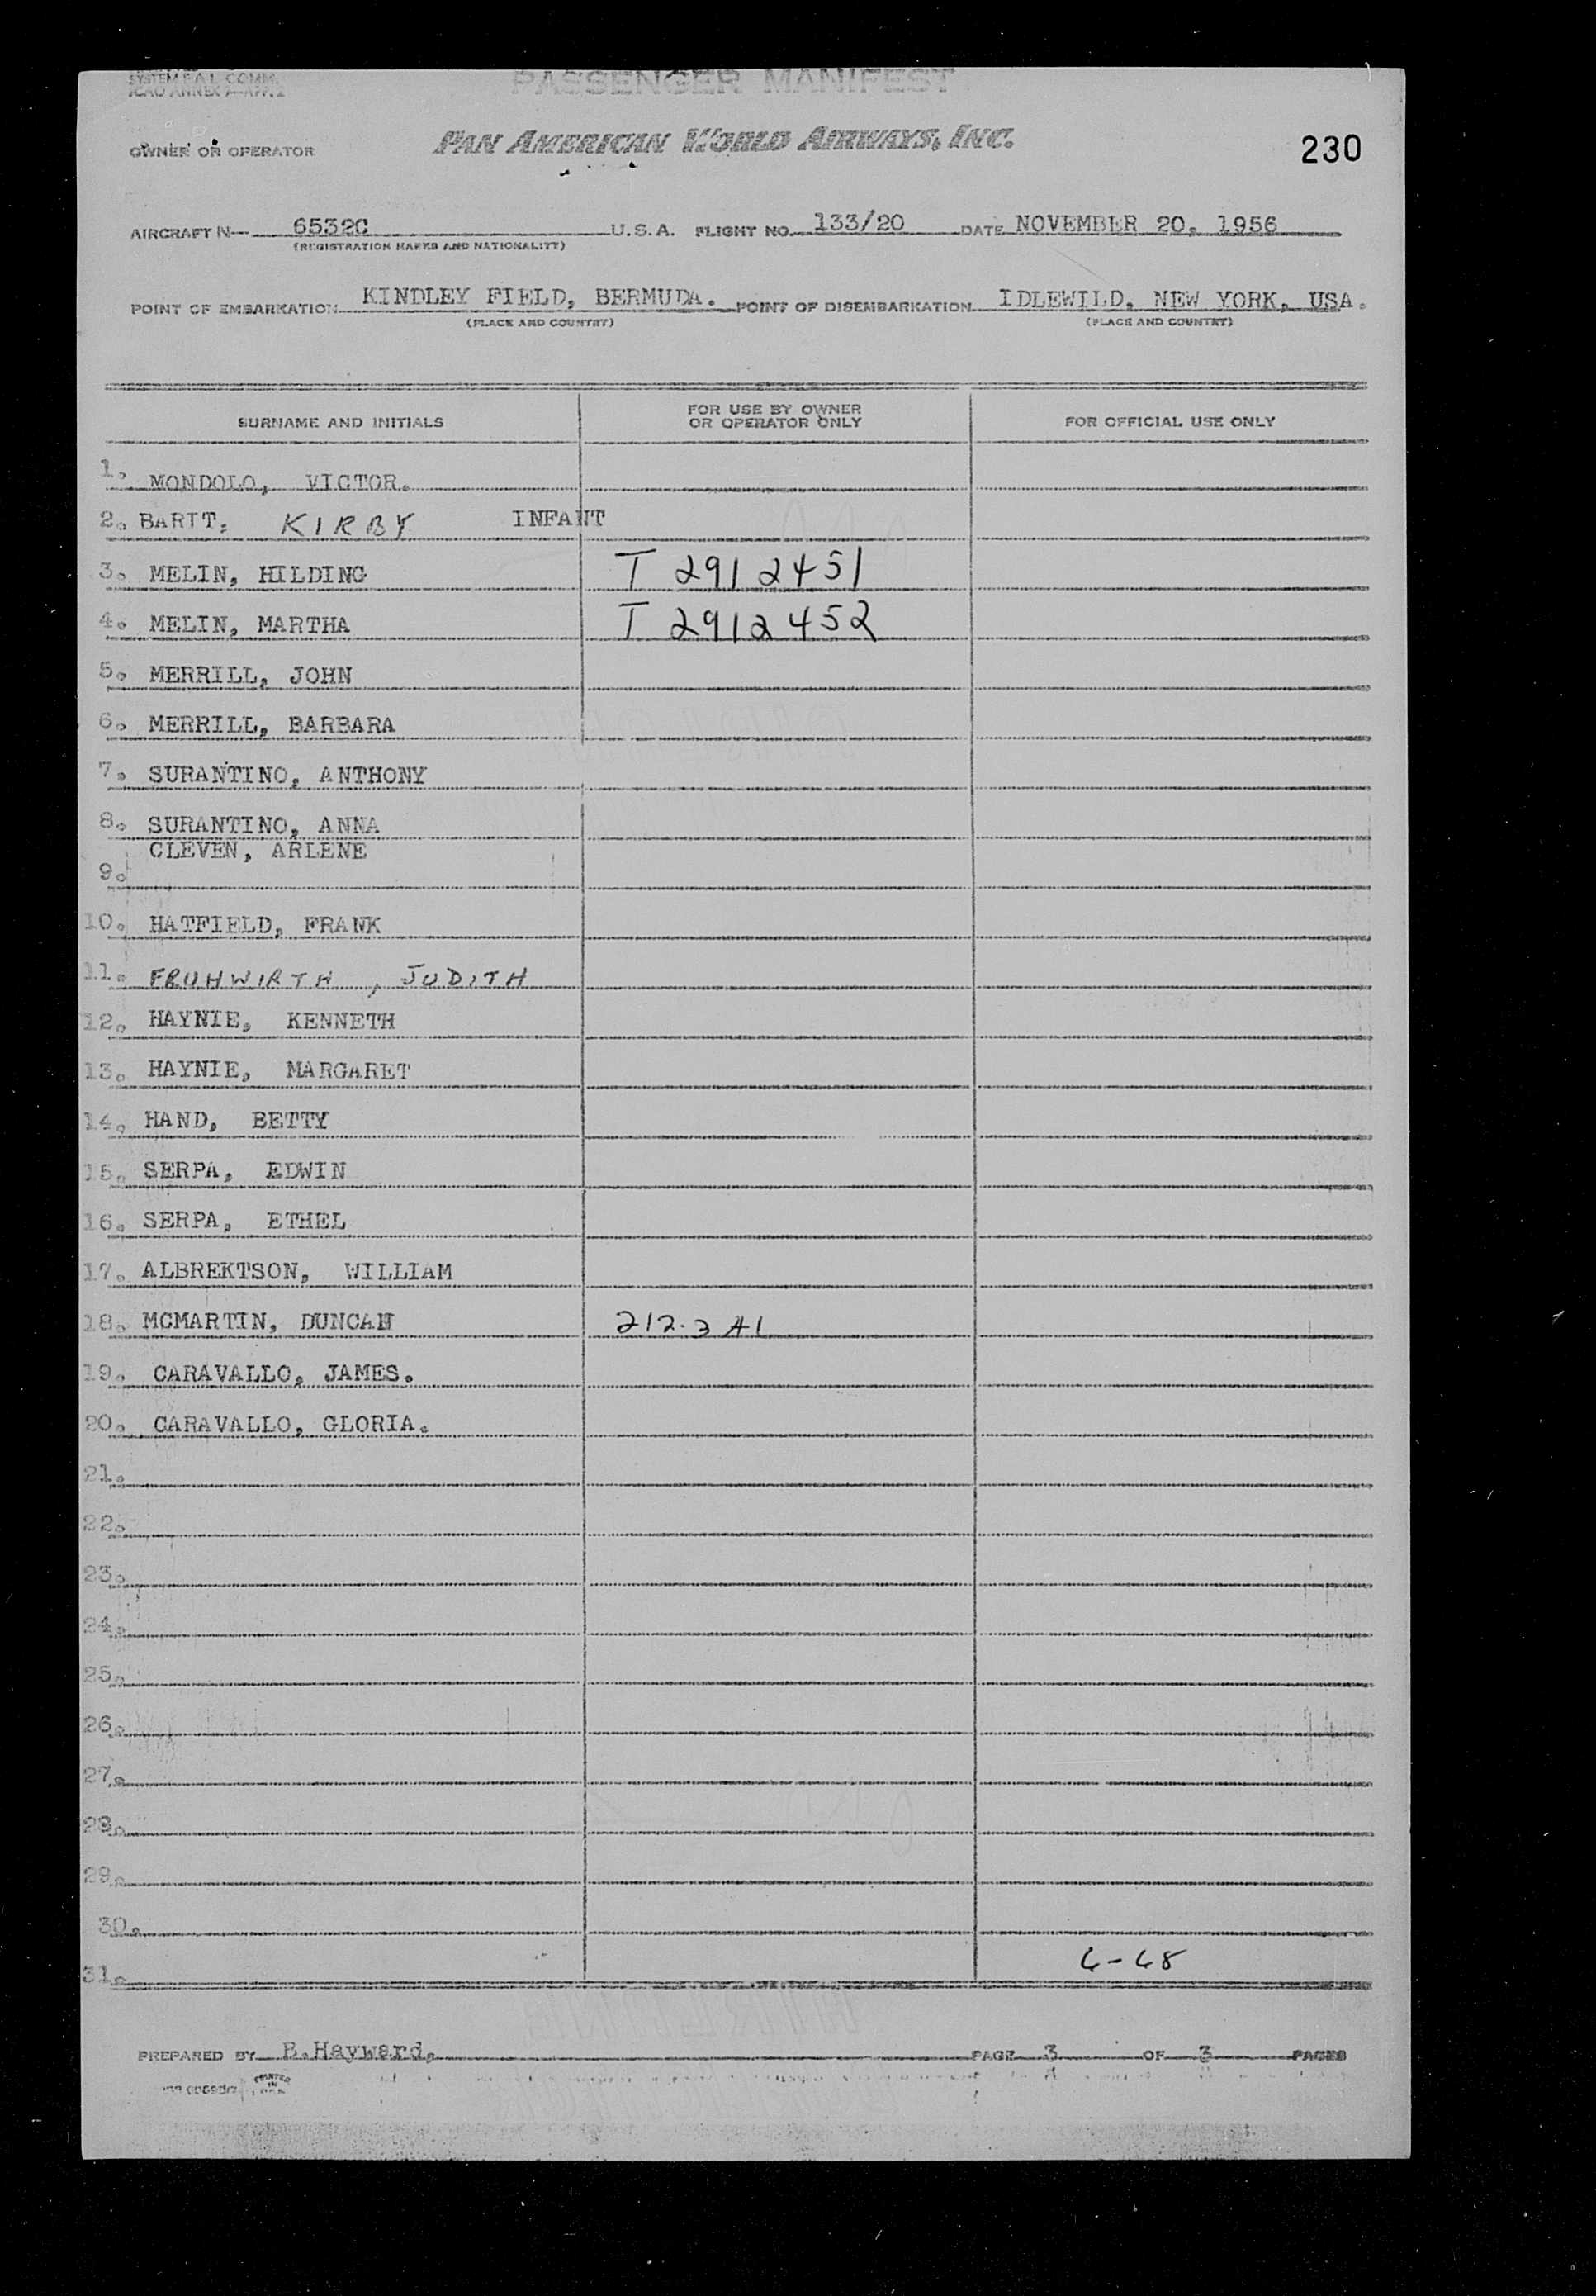 SYSTEM F.A.L. COMM.
ICAO ANNEX 9—APP. 2
PASSENGER MANIFEST
OWNER OR OPERATOR PAN AMERICAN WORLD AIRWAYS, INC. 230
AIRCRAFT N— 6532C U.S.A. FLIGHT NO. 133/20 DATE NOVEMBER 20, 1956
(REGISTRATION MARKS AND NATIONALITY)
POINT OF EMBARKATION KINDLEY FIELD, BERMUDA. POINT OF DISEMBARKATION IDLEWILD, NEW YORK, USA.
(PLACE AND COUNTRY) (PLACE AND COUNTRY)
SURNAME AND INITIALS FOR USE BY OWNER OR OPERATOR ONLY FOR OFFICIAL USE ONLY
1. MONDOLO, VICTOR.
2. BARTT, KIRBY INFANT
3. MELIN, HILDING T 2912451
4. MELIN, MARTHA T 2912452
5. MERRILL, JOHN
6. MERRILL, BARBARA
7. SURANTINO, ANTHONY
8. SURANTINO, ANNA
CLEVEN, ARLENE
9.
10. HATFIELD, FRANK
11. FRUHWIRTH, JUDITH
12. HAYNIE, KENNETH
13. HAYNIE, MARGARET
14. HAND, BETTY
15. SERPA, EDWIN
16. SERPA, ETHEL
17. ALBREKTSON, WILLIAM
18. MCMARTIN, DUNCAN 212.3 A1
19. CARAVALLO, JAMES.
20. CARAVALLO, GLORIA.
21.
22.
23.
24.
25.
26.
27.
28.
29.
30.
31. 6-68
PREPARED BY B.Hayward. PAGE 3 OF 3 PAGES
PRINTED IN U.S.A.